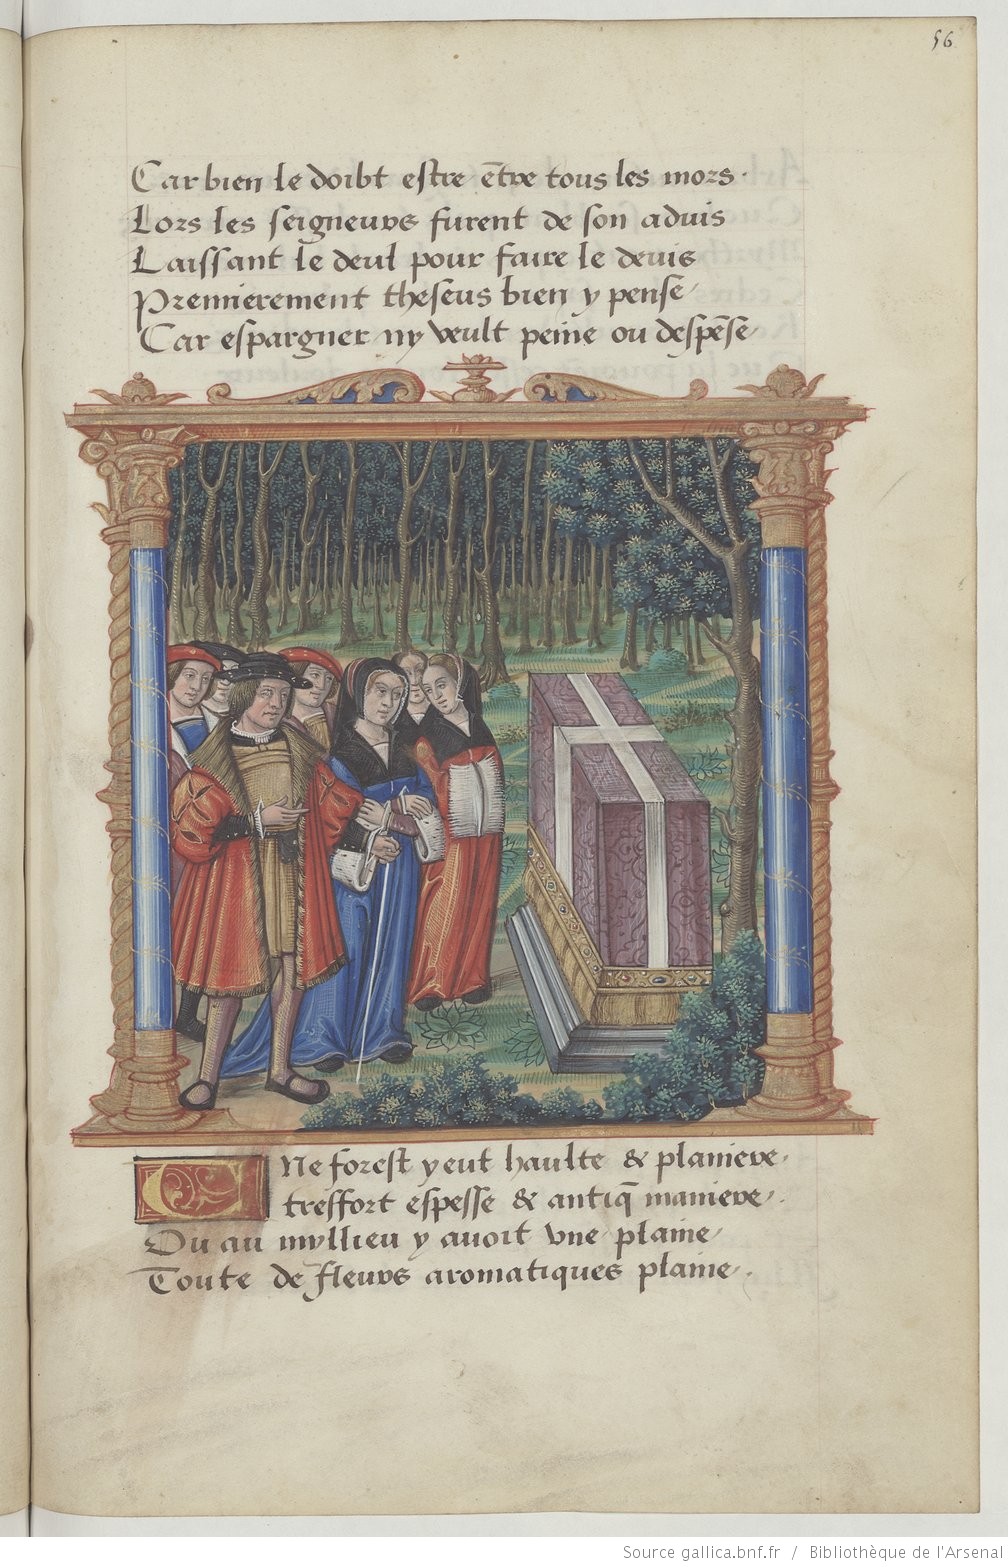 56
Car bien le doibt estre ẽtre tous les mors.
Lors les seigneurs furent de son aduis
Laissant le deul pour faire le deuis
Premierement theseus bien y pense
Car espargner ny veult peine ou despẽse
Vne forest y eut haulte & planiere
tresfort espesse & antiq̃ maniere
Ou au myllieu y auoit vne plaine
Toute de fleurs aromatiques plaine
Source gallica.bnf.fr / Bibliothèque de l'Arsenal